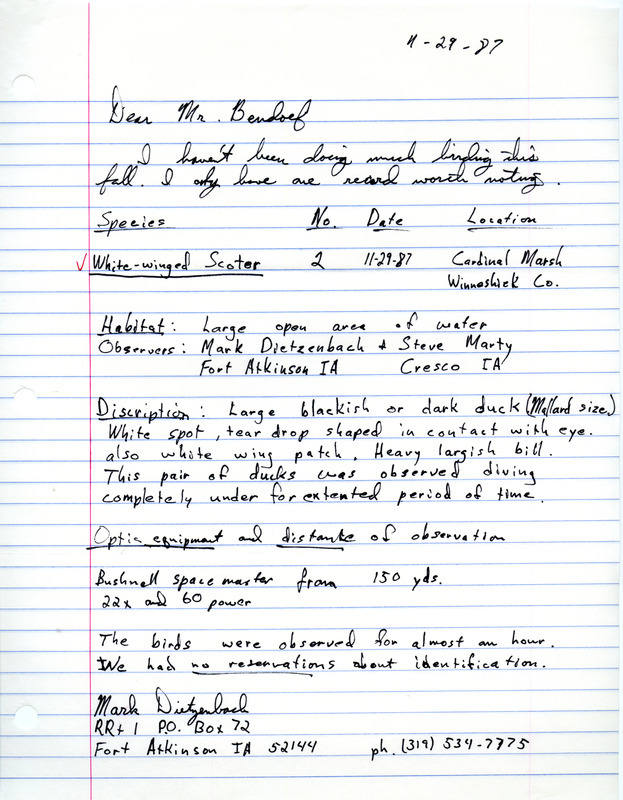 11-29-87
Dear Mr. Bendorf
I haven't been doing much birding this
fall. I only have one record worth noting.
Species No. Date Location
✓ White-winged Scoter 2 11-29-87 Cardinal Marsh
Winneshiek Co.
Habitat: Large open area of water
Observers: Mark Dietzenbach & Steve Marty
Fort Atkinson IA Cresco IA
Discription: Large blackish or dark duck (Mallard size)
White spot, tear drop shaped in contact with eye.
also white wing patch. Heavy largish bill.
This pair of ducks was observed diving
completely under for extented period of time.
Optic equipment and distante of observation
Bushnell space master from 150 yds.
22x and 60 power
The birds were observed for almost an hour.
We had no reservations about identification.
Mark Dietzenbach
RR# 1 P.O. Box 72
Fort Atkinson IA 52144 ph. (319) 534-7775